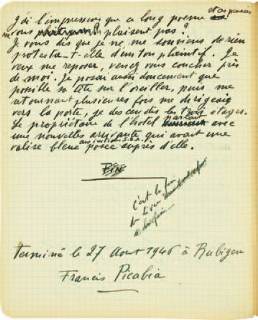 J'ai l'impression que ce long poème
vous plaisent pas ?
Je vous dis que je ne me souviens de rien
protesta-t-elle d'un ton plaintif. Je
veux me reposer, venez vous coucher près
de moi. Je posai aussi doucement que
possible ma tête sur l'oreiller, puis me
retournant plusieurs fois me dirigeais
vers la porte, je descendis les trois étages.
Le propriétaire de l'hôtel parlait avec
une nouvelle arrivante qui avait une
valise bleue posée auprès d'elle.
FIN
c'est la fin
Terminé le 27 Août 1946 à Rubigen
Francis Picabia